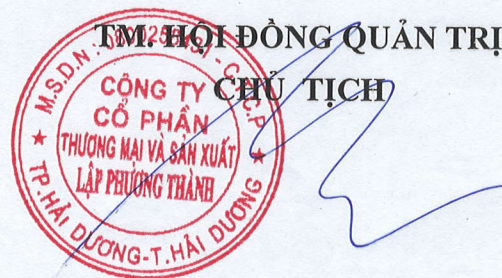 TM. HỘI ĐỒNG QUẢN TRỊ
CHỦ TỊCH
M.S.D.N: - C.T.C.P
CÔNG TY
CỔ PHẦN
THƯƠNG MẠI VÀ SẢN XUẤT
LẬP PHƯƠNG THÀNH
TP.HẢI DƯƠNG-T.HẢI DƯƠNG